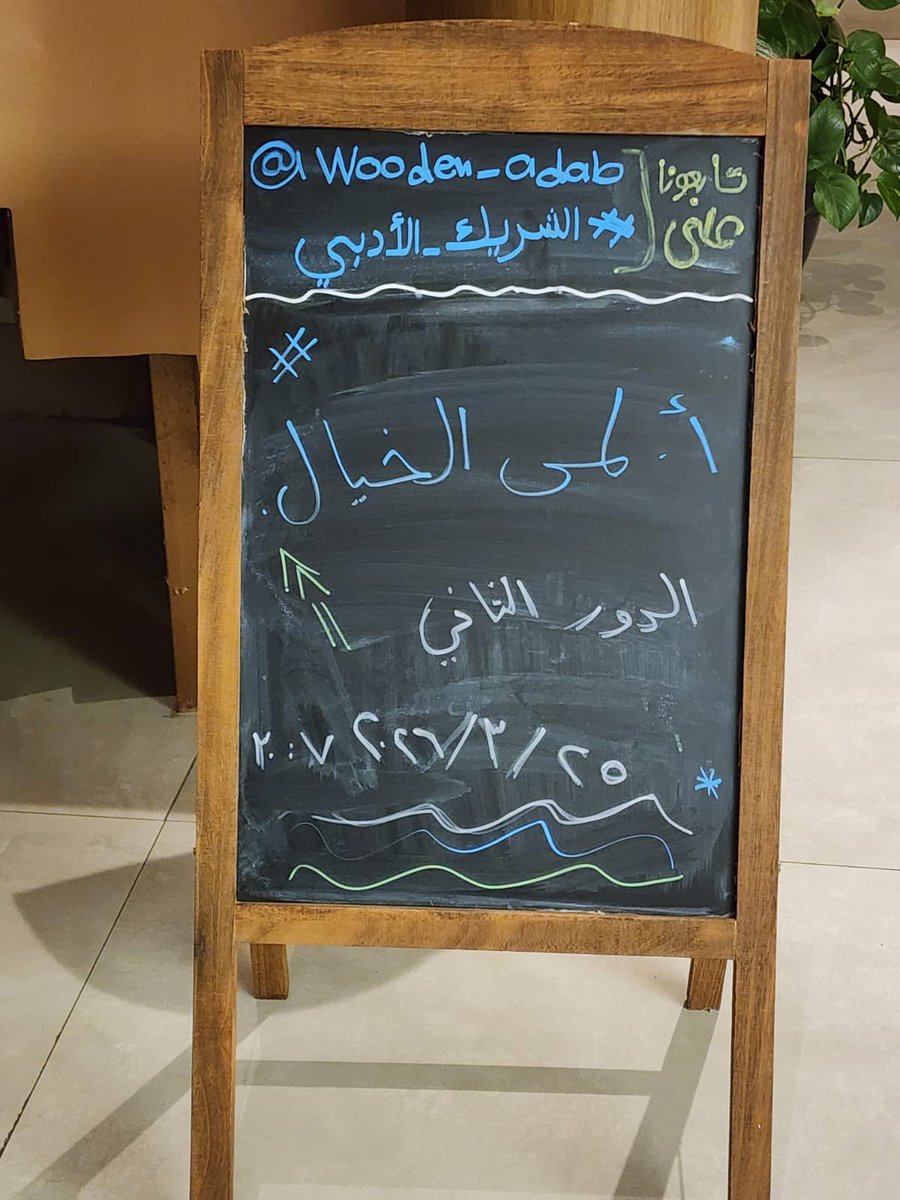 تابعونا على
@Wooden_adab
#الشريك_الأدبي
#
أ. لمى الخيال.
الدور الثاني
٢٥/٣/٢٠٢٦
٢٠:٠٧